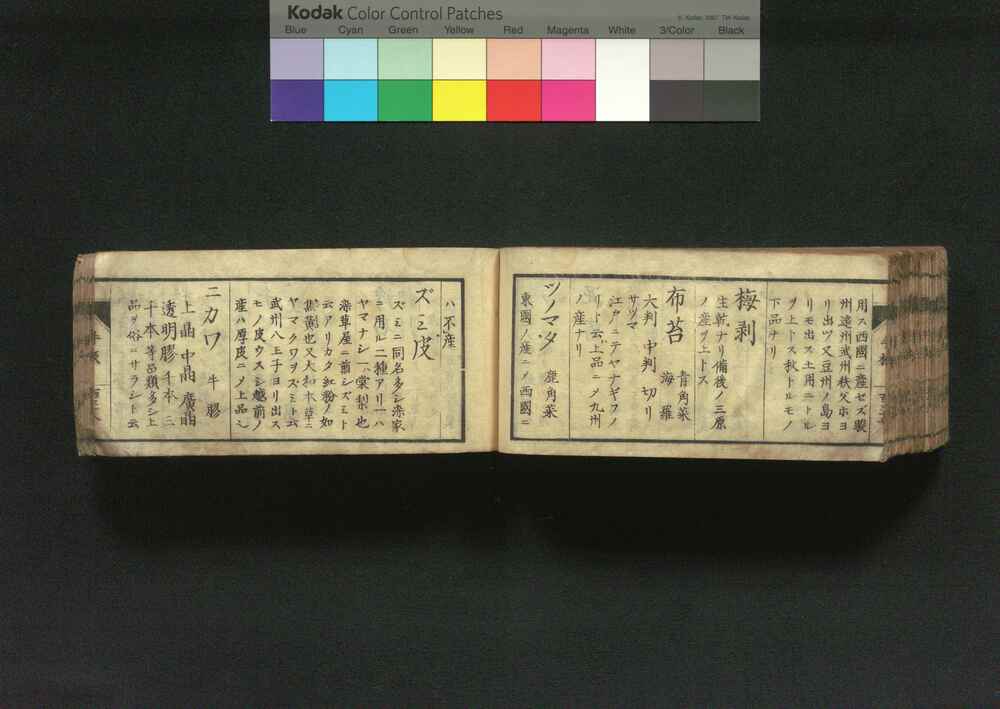 Kodak Color Control Patches
© Kodak, 2007 TM: Kodak
Blue Cyan Green Yellow Red Magenta White 3/Color Black
用ス西國ニ產セズ製
州遠州武州秩父ホヨ
リ出ツ又豆州ノ島ヨ
リモ出ス土用ニトル
ヲ上トス秋トルモノ
下品ナリ
梅剥
生乾ナリ備後ノ三原
ノ產ヲ上トス
布苔 青角菜 海羅
大判 中判 切リ
サツマ
江戸ニテヤナギフノ
リト云上品ニ〆九州
ノ產ナリ
ツノマタ 鹿角菜
東國ノ產ニ〆西國ニ
ハ不產
ズミ皮
ズミニ同名多シ染家
ニ用ル二種アリ一ハ
ヤマナシ一棠梨也
染草屋ニ前シズミト
云アリカタ紅粉ノ如
黄也又大和本草ニ
ヤマクワヲズミト云
武州八王子ヨリ出ス
モノ皮ウスシ越前ノ
產ハ厚皮ニ〆上品也
ニカワ 牛膠
上晶 中晶 廣晶
透明膠 千本 二
千本等品類多シ上
品ヲ俗ニサラシト云